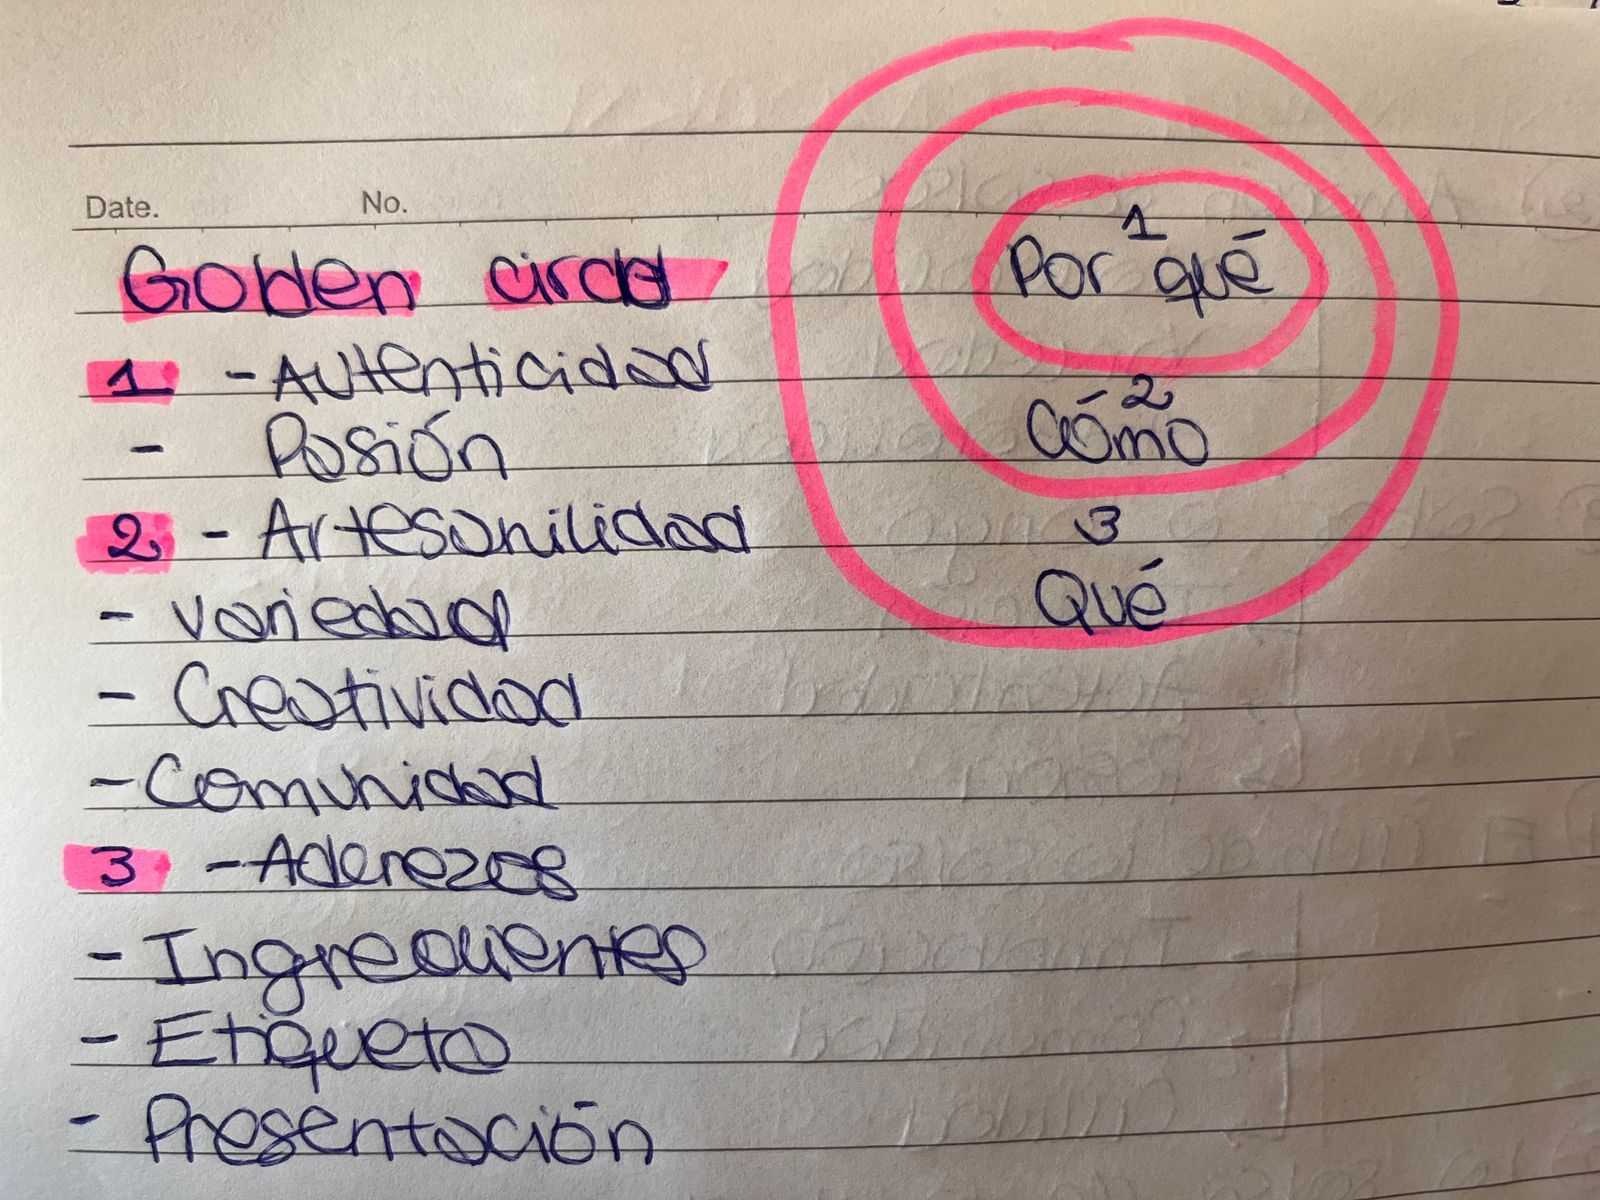 Date. No.
Golden circel
1 - Autenticidad
- Pasión
2 - Artesanilidad
- Variedad
- Creatividad
- Comunidad
3 - Aderezos
- Ingredientes
- Etiqueta
- Presentación
1
Por qué
2
Cómo
3
Qué